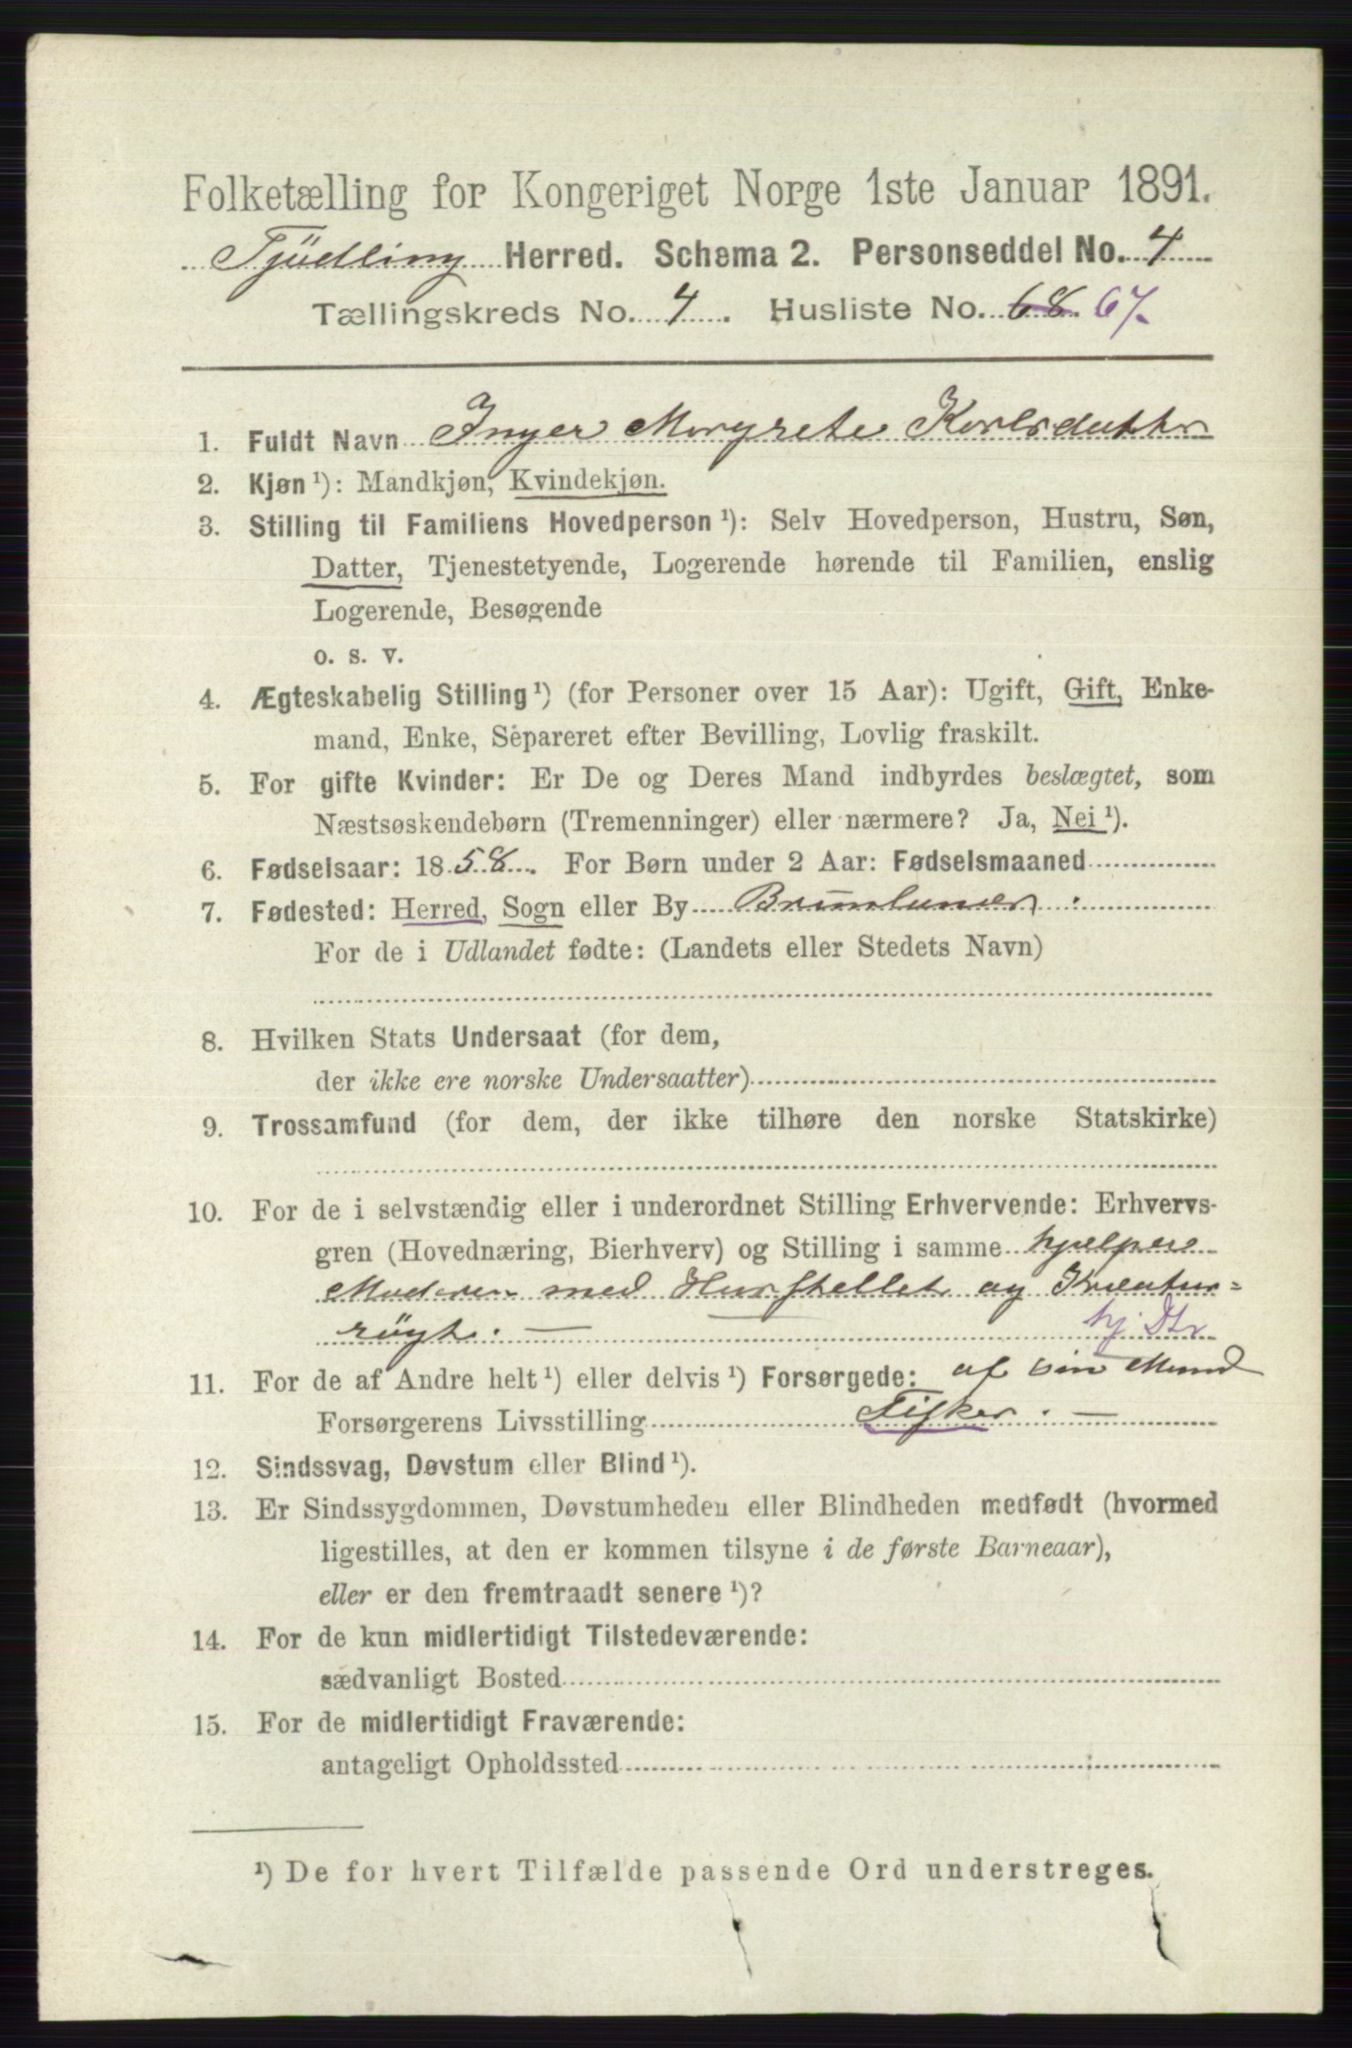 Folketælling for Kongeriget Norge 1ste Januar 1891.
Tjüdling Herred. Schema 2. Personseddel No. 4
Tællingskreds No. 4. Husliste No. 68. 67.
1. Fuldt Navn Inger Margrete Karlsdatter
2. Kjøn ¹): Mandkjøn, Kvindekjøn.
3. Stilling til Familiens Hovedperson ¹): Selv Hovedperson, Hustru, Søn,
Datter, Tjenestetyende, Logerende hørende til Familien, enslig
Logerende, Besøgende
o. s. v.
4. Ægteskabelig Stilling ¹) (for Personer over 15 Aar): Ugift, Gift, Enke-
mand, Enke, Separeret efter Bevilling, Lovlig fraskilt.
5. For gifte Kvinder: Er De og Deres Mand indbyrdes beslægtet, som
Næstsøskendebørn (Tremenninger) eller nærmere? Ja, Nei ¹).
6. Fødselsaar: 1858. For Børn under 2 Aar: Fødselsmaaned
7. Fødested: Herred, Sogn eller By Brunlanes.
For de i Udlandet fødte: (Landets eller Stedets Navn)
8. Hvilken Stats Undersaat (for dem,
der ikke ere norske Undersaatter)
9. Trossamfund (for dem, der ikke tilhøre den norske Statskirke)
10. For de i selvstændig eller i underordnet Stilling Erhvervende: Erhvervs-
gren (Hovednæring, Bierhverv) og Stilling i samme hjælper
Moderen med Husstellet og Kreatur-
røgt. — hj Dtr
11. For de af Andre helt ¹) eller delvis ¹) Forsørgede: af sin Mand
Forsørgerens Livsstilling Fisker. —
12. Sindssvag, Døvstum eller Blind ¹).
13. Er Sindssygdommen, Døvstumheden eller Blindheden medfødt (hvormed
ligestilles, at den er kommen tilsyne i de første Barneaar),
eller er den fremtraadt senere ¹)?
14. For de kun midlertidigt Tilstedeværende:
sædvanligt Bosted
15. For de midlertidigt Fraværende:
antageligt Opholdssted
¹) De for hvert Tilfælde passende Ord understreges.